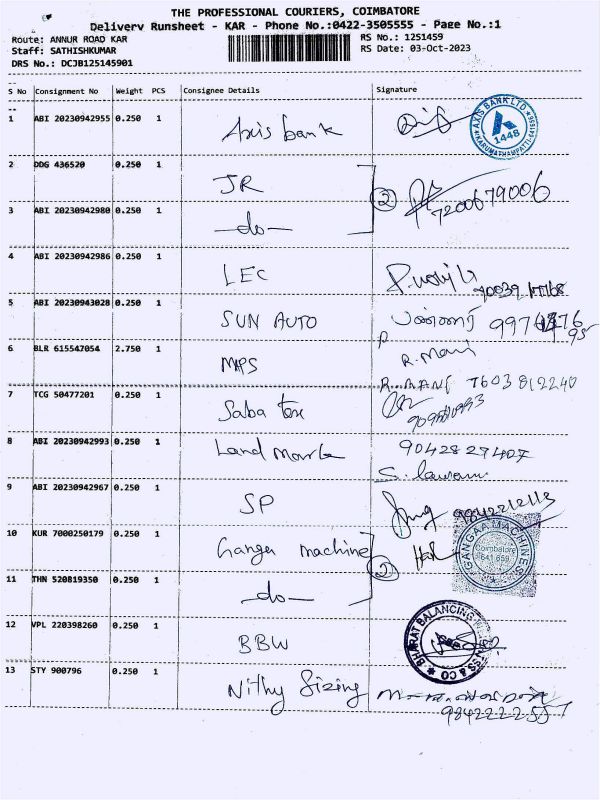 THE PROFESSIONAL COURIERS, COIMBATORE
Delivery Runsheet - KAR - Phone No.:0422-3505555 - Page No.:1
Route: ANNUR ROAD KAR
RS No.: 1251459
Staff: SATHISHKUMAR
RS Date: 03-Oct-2023
DRS No.: DCJB125145901
S No Consignment No Weight PCS Consignee Details Signature
1 ABI 20230942955 0.250 1 Axis bank
AXIS BANK LTD
1448
2 DDG 436520 0.250 1 JR 2 7200679006
3 ABI 20230942980 0.250 1 -do-
4 ABI 20230942986 0.250 1 LEC
5 ABI 20230943028 0.250 1 SUN AUTO
6 BLR 615547054 2.750 1 MPS R. Mani
R. MANI 7603812240
7 TCG 50477201 0.250 1 Saba Tex
8 ABI 20230942993 0.250 1 Land Mark 9042827407
9 ABI 20230942967 0.250 1 SP
10 KUR 7000250179 0.250 1 Ganga machine
GANGAA MACHINES
Coimbatore
641 659
11 THN 520819350 0.250 1 -do-
12 VPL 220398260 0.250 1 BBW
BHARAT BALANCING
& CO
13 STY 900796 0.250 1 Nithy Sizing